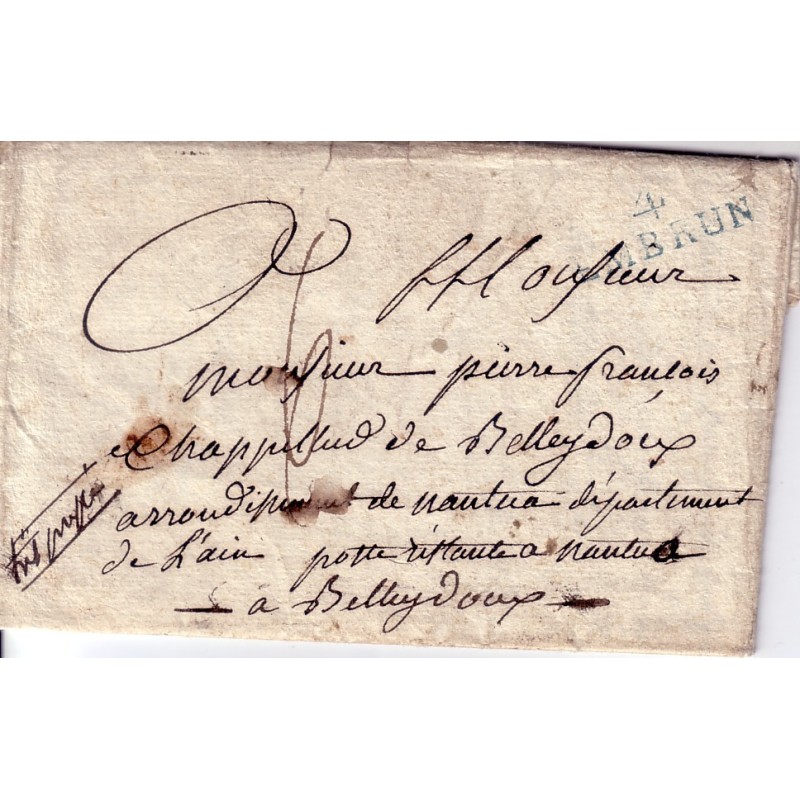 4
EMBRUN
A Monsieur
6
monsieur pierre françois
Chappellud de Belleydoux
arrondissement de nantua département
de L'ain poste restante a nantua
à Belleydoux
très pressé